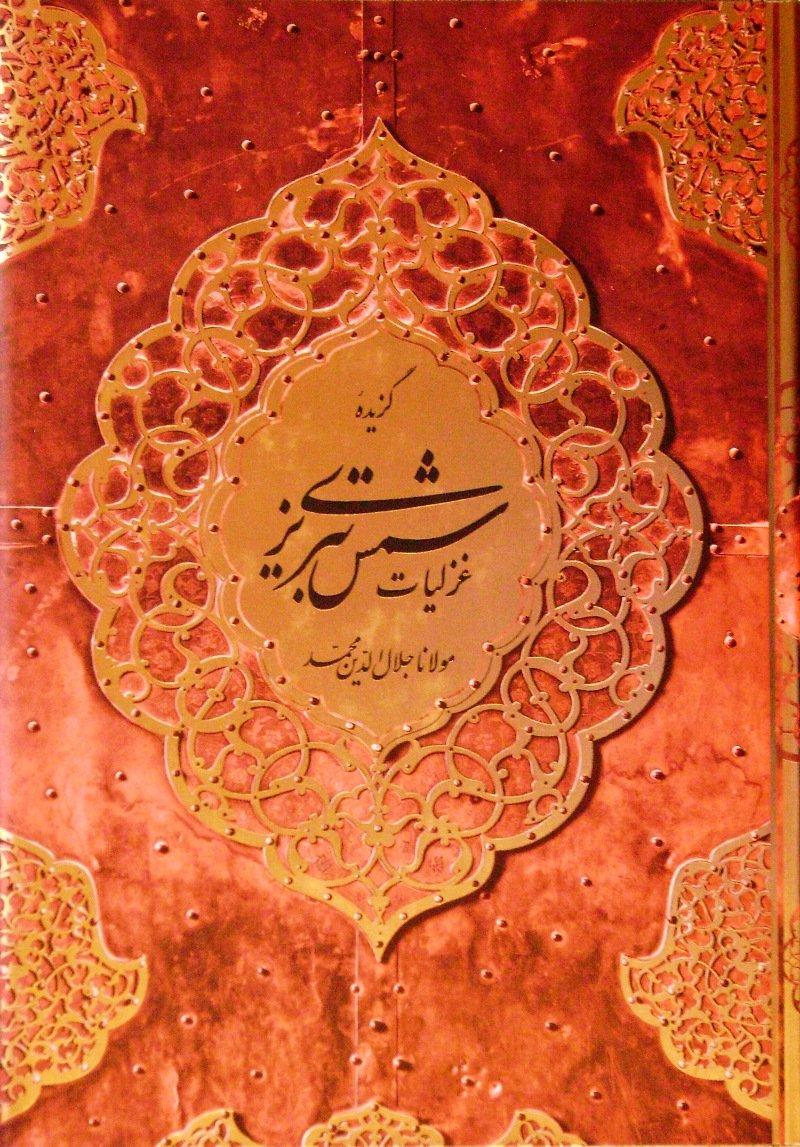 گزیدهٔ
غزلیات
شمس تبریزی
مولانا جلال الدین محمد